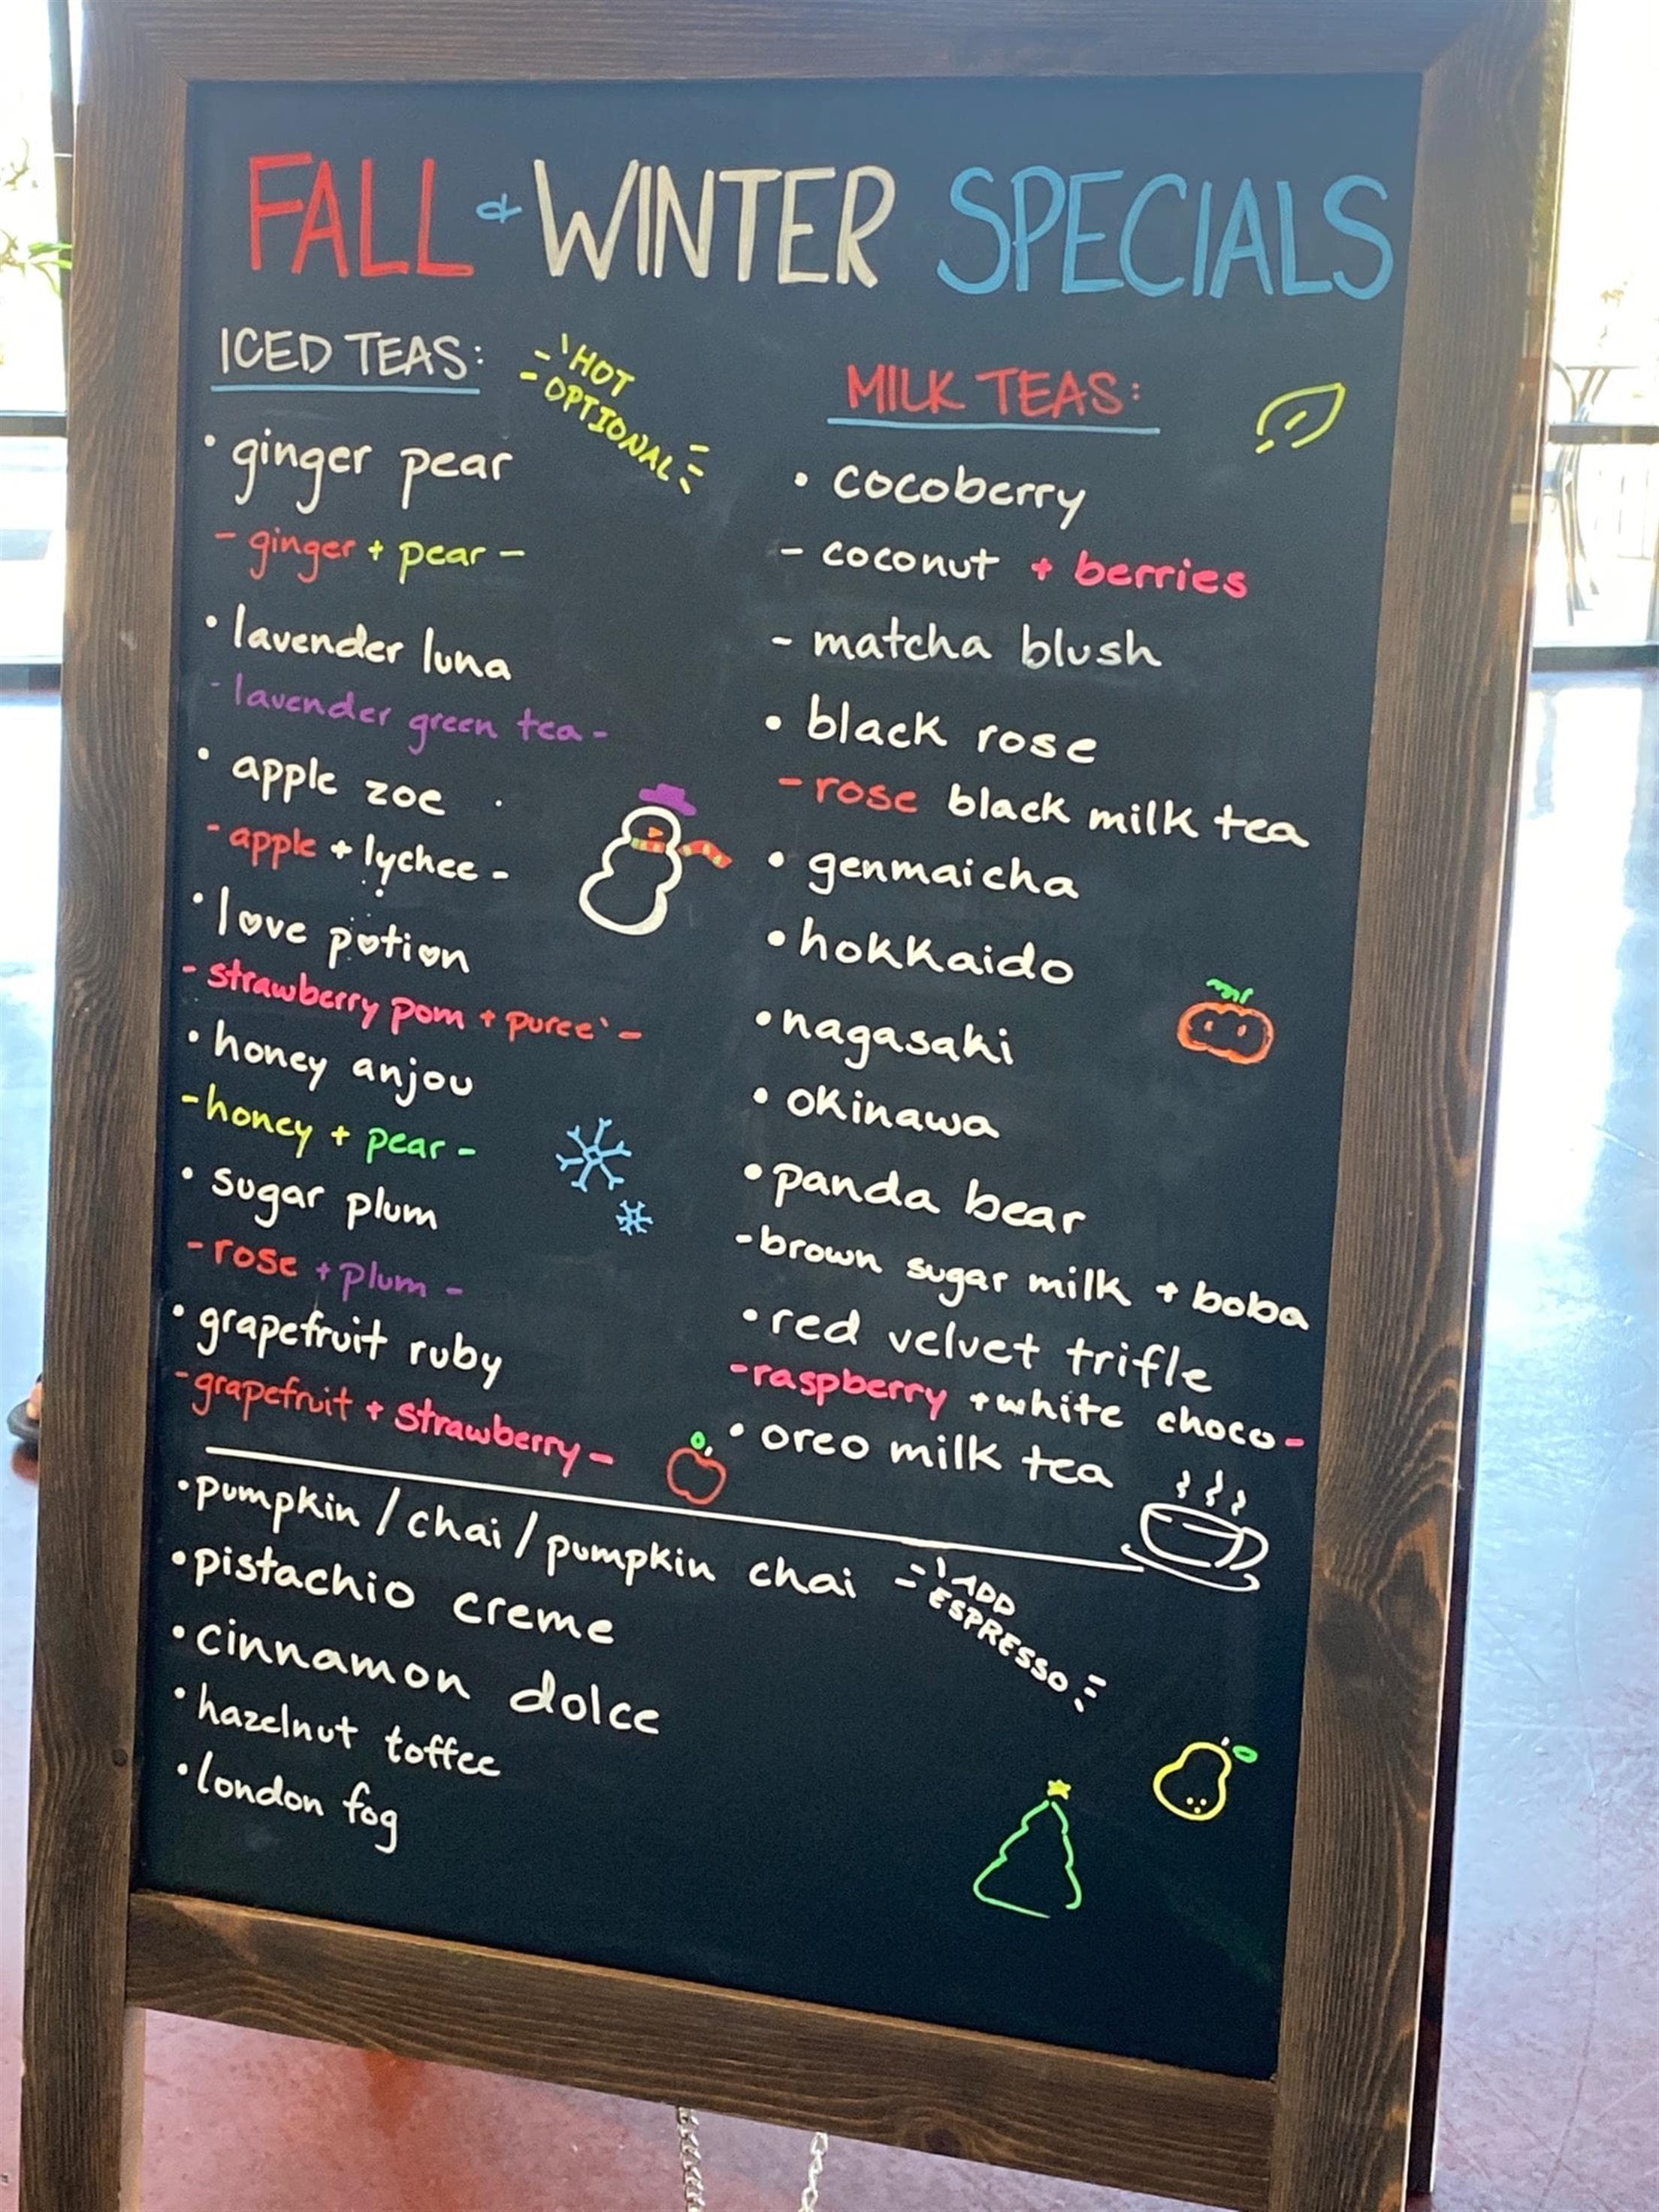 FALL & WINTER SPECIALS
ICED TEAS:
HOT
OPTIONAL
• ginger pear
- ginger + pear -
• lavender luna
- lavender green tea -
• apple zoe
- apple + lychee -
• love potion
- strawberry pom + pureé -
• honey anjou
- honey + pear -
• sugar plum
- rose + plum -
• grapefruit ruby
- grapefruit + strawberry -
MILK TEAS:
• cocoberry
- coconut + berries
- matcha blush
• black rose
- rose black milk tea
• genmaicha
• hokkaido
• nagasaki
• okinawa
• panda bear
- brown sugar milk + boba
• red velvet trifle
- raspberry + white choco -
• oreo milk tea
• pumpkin / chai / pumpkin chai
ADD
ESPRESSO
• pistachio creme
• cinnamon dolce
• hazelnut toffee
• london fog